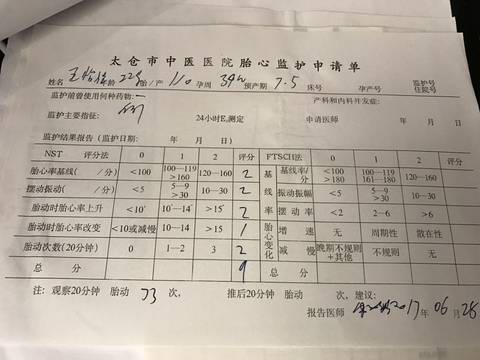 太仓市中医医院胎心监护申请单
姓名 年龄 22岁 胎/产 1/0 孕周 39w 预产期 7.5 床号 孕产号 监护号 住院号
监护前曾使用何种药物: 产科和内科并发症:
监护主要指征: 24小时E₃测定 申请医师 年 月 日
监护结果报告(监护日期: 年 月 日)
NST 评分法 0 1 2 评分 FTSCH法 0 1 2
胎心率基线( /分) <100 100—119 >160 120—160 2 基线率/分 <100 >180 100—119 161—180 120—160
摆动振动( /分) <5 5—9 >30 10—30 2 振动振幅 <5 5—9 >30 10—30
胎动时胎心率上升 <10″ 10″—14″ >15″ 2 摆动率 <2 2—6 >6
胎动时胎心率改变 <10或减慢 10—14 >15 1 增速 无 周期性 散在性
胎动次数(20分钟) 0 1—2 3 2 减慢 晚期不规则+其他 不规则 无
基线 胎心率变化
总分 9 总分
注: 观察20分钟 胎动 次, 推后20分钟 胎动 次, 建议:
报告医师 2017年 06月 28